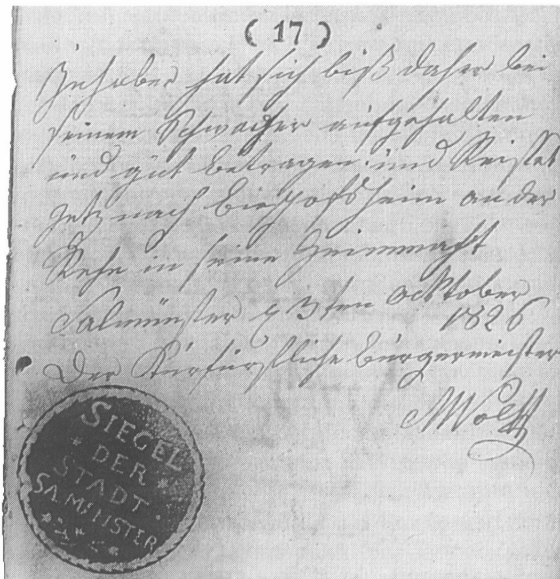 ( 17 )
Inhaber hat sich biß daher bei
seinem Schwager aufgehalten
und gut betragen und Reistet
Jetz nach Bischofsheim an der
Rehn in seine Heimmaht
Salmünster d 3tenOcktober
1826
Der Kurfürstliche Bürgermeister
Wolff
SIEGEL
DER
STADT
SALMÜNSTER